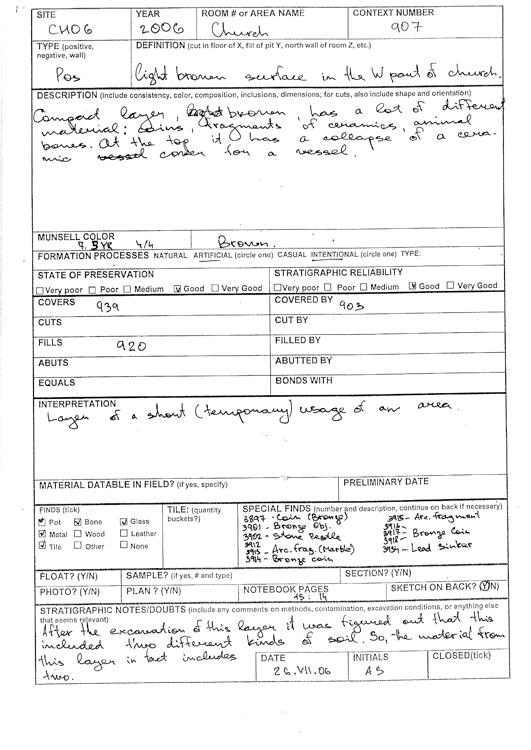 SITE YEAR ROOM # or AREA NAME CONTEXT NUMBER
CH06 2006 Church 907
TYPE (positive, negative, wall) DEFINITION (cut in floor of X, fill of pit Y, north wall of room Z, etc.)
Pos light brown surface in the W part of church.
DESCRIPTION (include consistency, color, composition, inclusions, dimensions; for cuts, also include shape and orientation)
Compact layer, brown, has a lot of different
material: coins, fragments of ceramics, animal
bones. At the top it has a collapse of a cera-
mic vessel cover for a vessel.
MUNSELL COLOR
7.5YR 4/4 Brown.
FORMATION PROCESSES NATURAL ARTIFICIAL (circle one) CASUAL INTENTIONAL (circle one) TYPE:
STATE OF PRESERVATION STRATIGRAPHIC RELIABILITY
Very poor Poor Medium Good Very Good Very poor Poor Medium Good Very Good
COVERS 939 COVERED BY 903
CUTS CUT BY
FILLS 920 FILLED BY
ABUTS ABUTTED BY
EQUALS BONDS WITH
INTERPRETATION
Layer of a short (temporary) usage of an area.
MATERIAL DATABLE IN FIELD? (if yes, specify) PRELIMINARY DATE
FINDS (tick) TILE: (quantity buckets?) SPECIAL FINDS (number and description, continue on back if necessary)
Pot Bone Glass
Metal Wood Leather
Tile Other None
3897 - Coin (Bronze)
3901 - Bronze Obj.
3902 - Stone
3912
3913 - Arc. Frag. (Marble)
3914 - Bronze coin
3915 - Arc. fragment
3916 -
3917 - Bronze Coin
3918 -
3934 - Lead Sinker
FLOAT? (Y/N) SAMPLE? (if yes, # and type) SECTION? (Y/N)
PHOTO? (Y/N) PLAN? (Y/N) NOTEBOOK PAGES SKETCH ON BACK? (Y/N)
STRATIGRAPHIC NOTES/DOUBTS (include any comments on methods, contamination, excavation conditions, or anything else that seems relevant)
After the excavation of this layer it was figured out that this
included two different kinds of soil. So, the material from
this layer in fact includes
two.
DATE INITIALS CLOSED(tick)
26.VII.06 AS